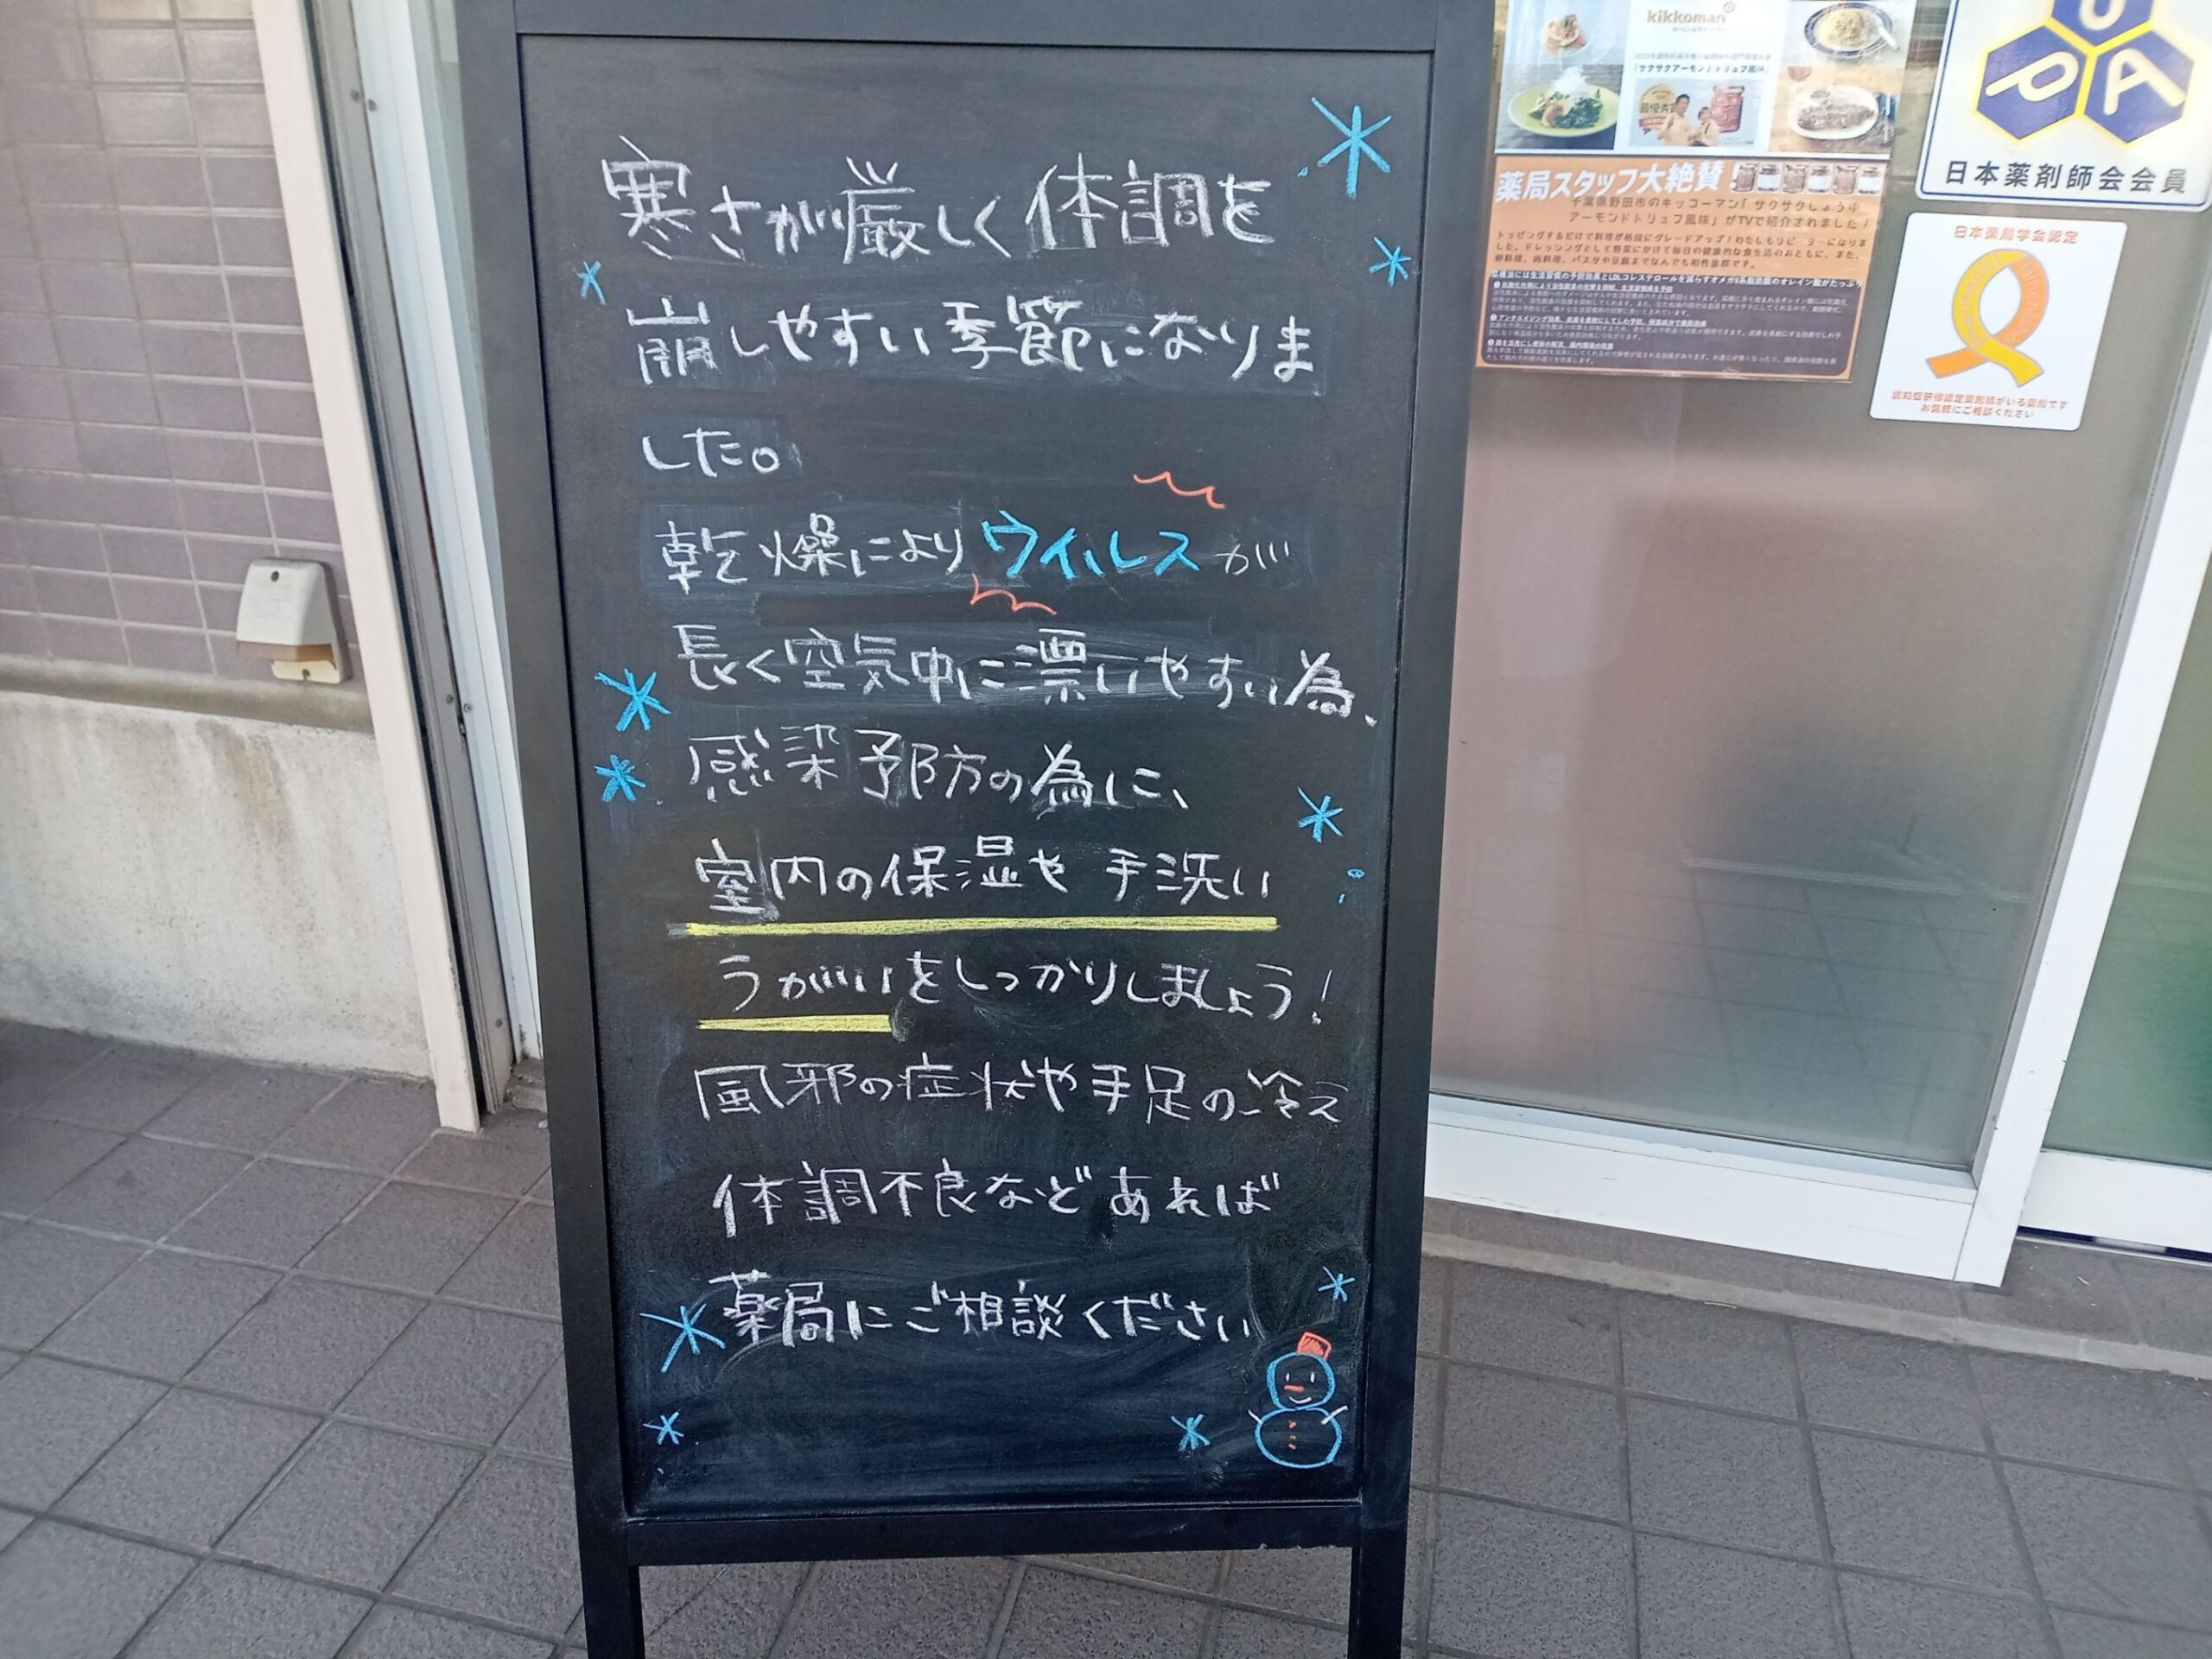 寒さが厳しく体調を
崩しやすい季節になりま
した。
乾燥によりウイルスが
長く空気中に漂いやすい為、
感染予防の為に、
室内の保湿や手洗い
うがいをしっかりしましょう!
風邪の症状や手足の冷え
体調不良などあれば
薬局にご相談ください
kikkoman
「サクサクアーモンドトリュフ風味」
薬局スタッフ大絶賛!
千葉県野田市のキッコーマン「サクサクしょうゆ
アーモンドトリュフ風味」がTVで紹介されました!
UPA
日本薬剤師会会員
日本薬局学会認定
認知症研修認定薬剤師がいる薬局です
お気軽にご相談ください